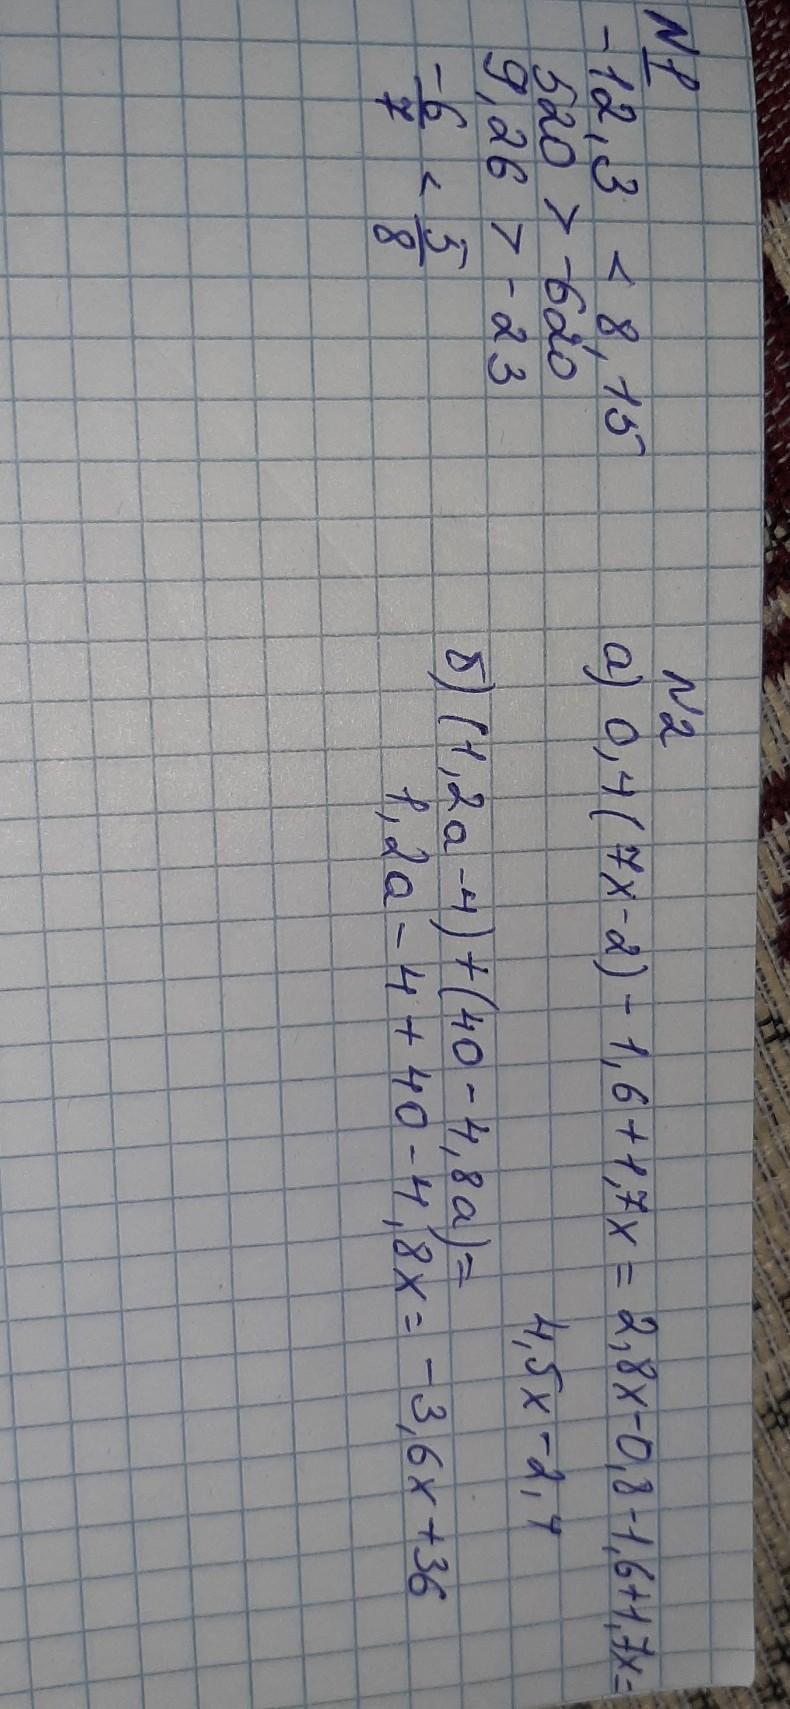 N1
-12,3 < 8,15
520 > -620
9,26 > -23
-6/7 < 5/8
N2
а) 0,4(7x-2)-1,6+1,7x = 2,8x-0,8-1,6+1,7x=
4,5x-2,4
б) (1,2a-4)+(40-4,8a)=
1,2a-4+40-4,8x= -3,6x+36